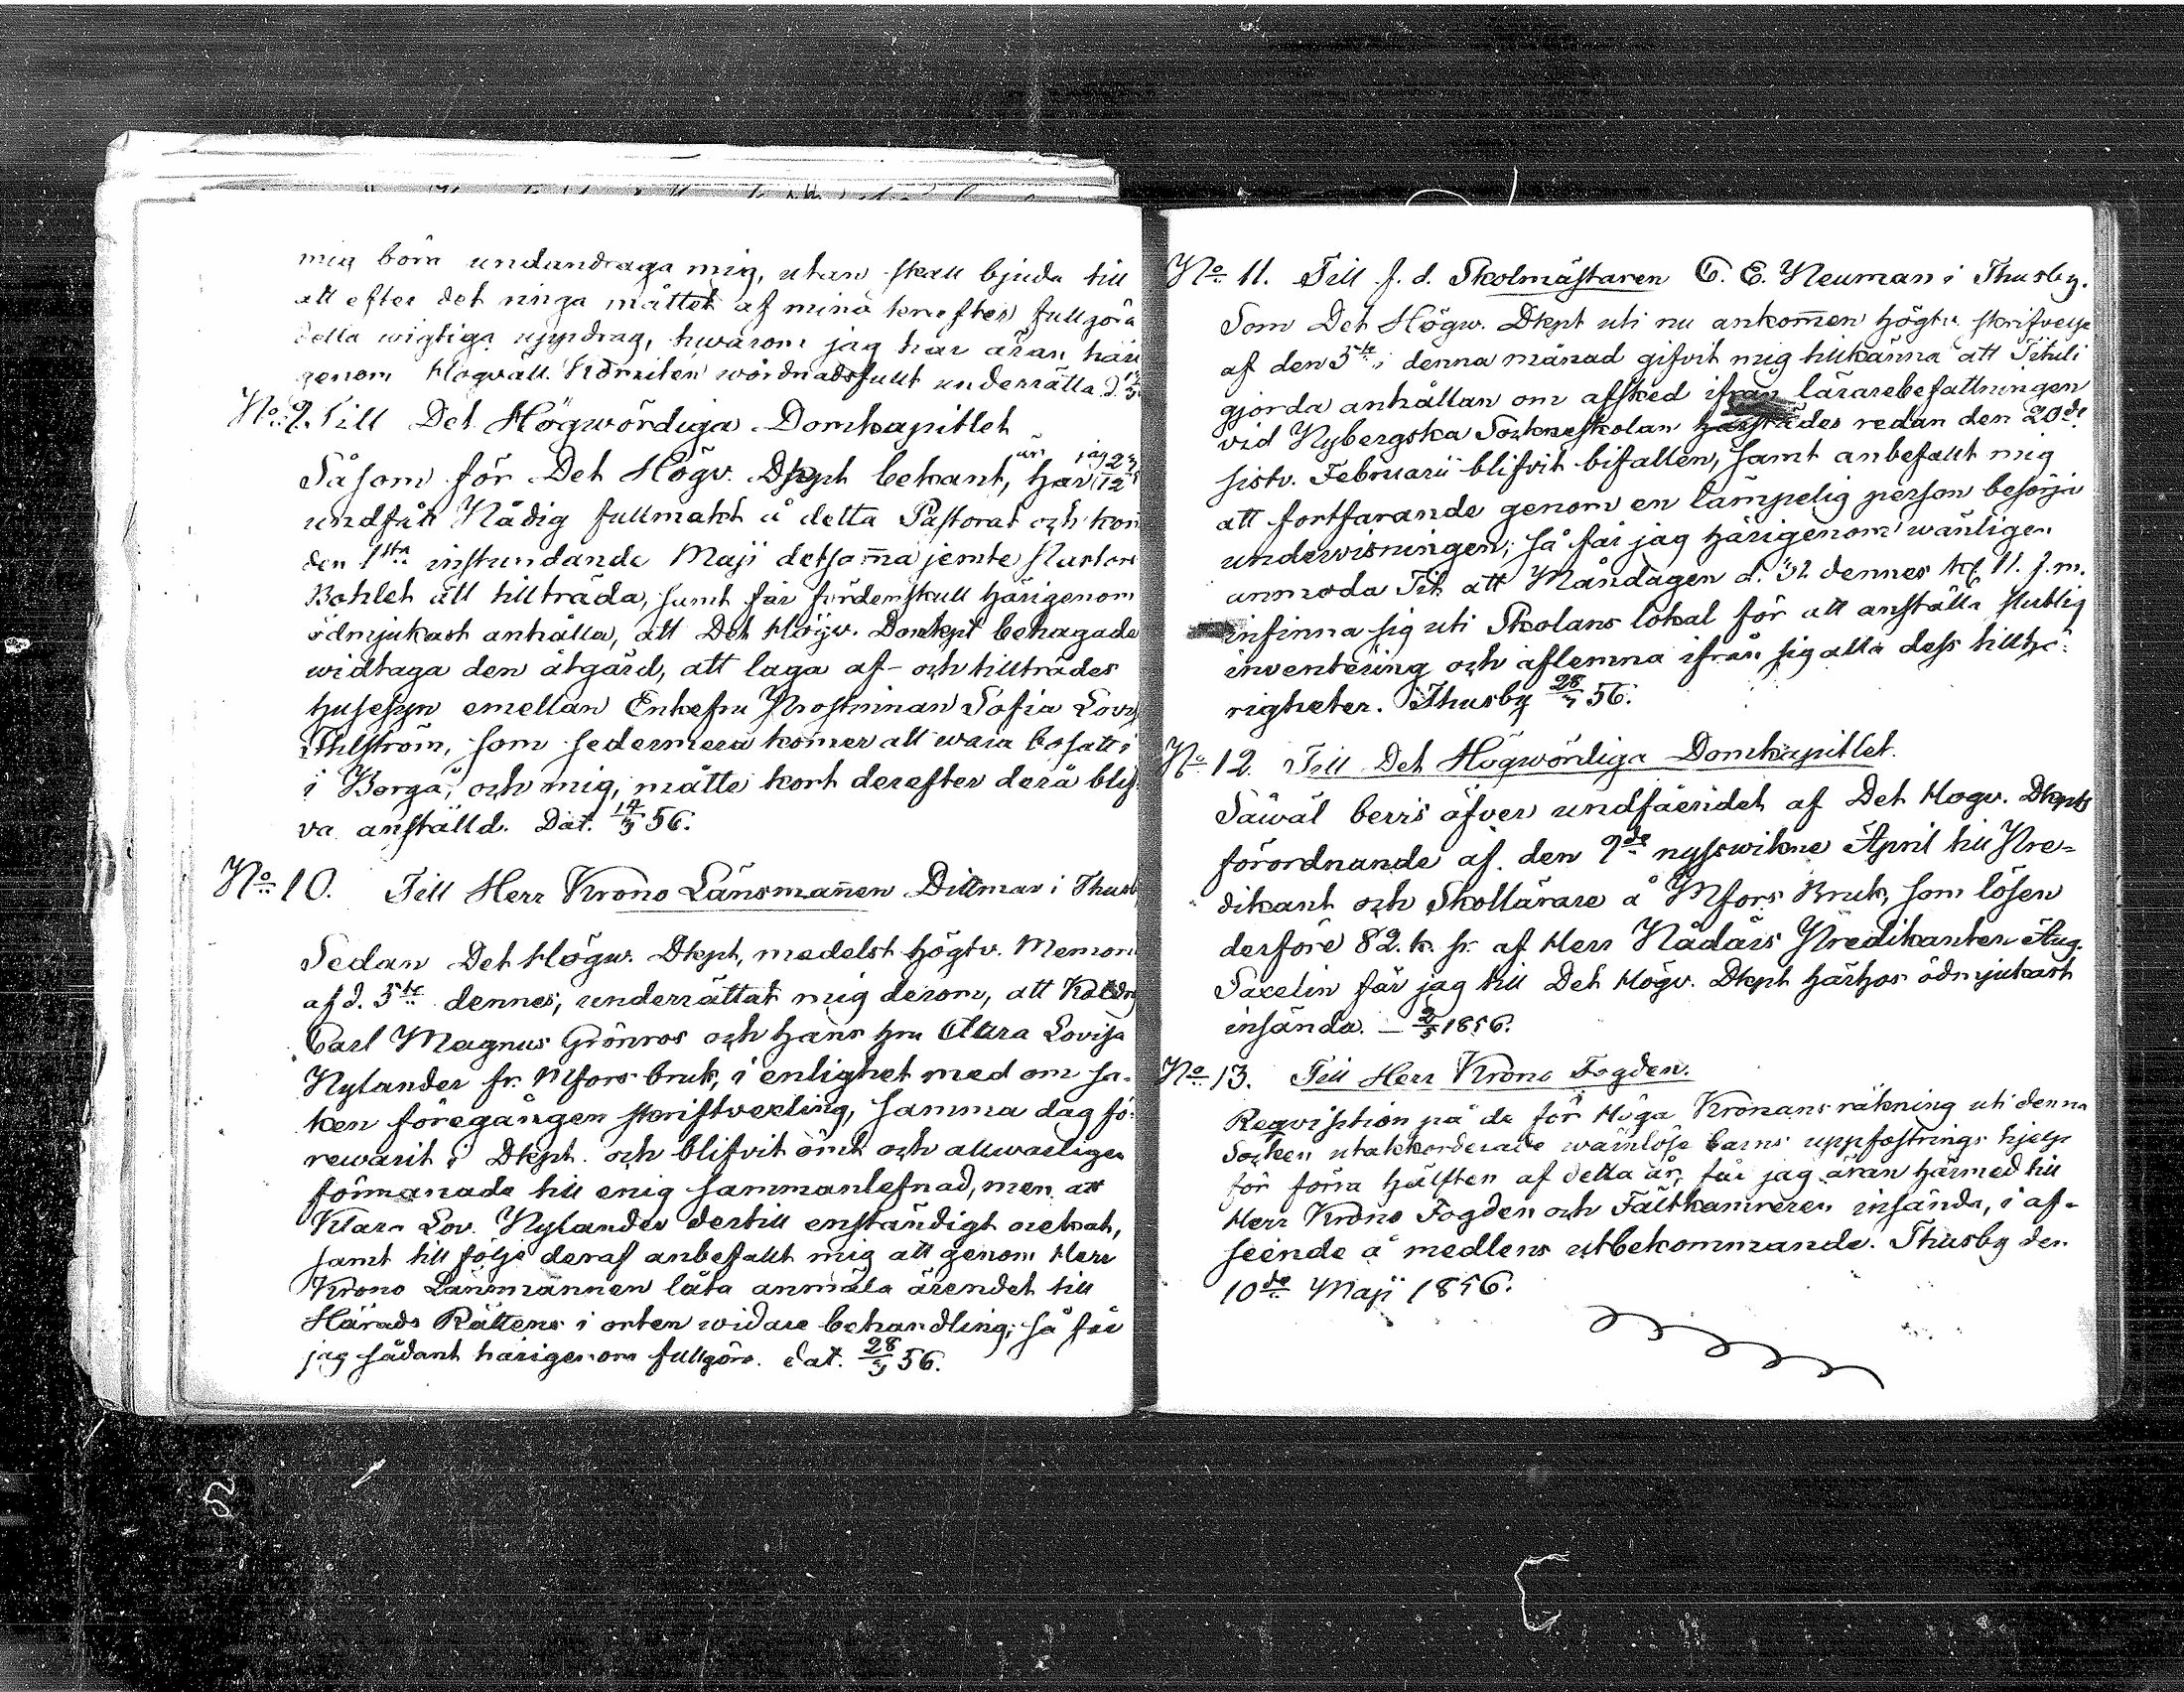 mig böra undandraga mig, utan skall bjuda till
att efter det ringa måttet af mina krafter fullgöra
detta wigtiga uppdrag, hwarom jag har äran häri
genom Högväll. Komitén wördnadsfullt underrätta.
No 9. Till Det Högwördiga Domkapitlet
Såsom för Det Högv. Dkpt bekant är, har jag
undfått Nådig fullmakt å detta Pastorat och kom̄
den 1sta instundande Maji detsam̄a jemte Pastors
Bohlet att tillträda, samt får fördenskull härigenom
ödmjukast anhålla, att Det Högv. Domkpt behagade
widtaga den åtgärd, att laga af- och tillträdes
husesyn emellan Enkefru Prostinnan Sofia Lovis
Ahlström, som sedermera kom̄er att wara bosatt i
i Borgå, och mig, måtte kort derefter derå blif-
va anställd. Dat. 14/3 56.
No 10. Till Herr Krono Länsman̄en Dittmar i Thusb
Sedan Det Högw. Dkpt, medelst högtv. Memori
af d. 5te dennes, underrättat mig derom, att
Carl Magnus Grönroos och hans hru Clara Lovisa
Nylander fr. Mfors bruk, i enlighet med om sa-
ken föregången skriftvexling, samma dag fö-
rewarit i Dkpt. och blifvit ömt och allwarligen
förmanade till enig sammanlefnad, men att
Klara Lov. Nylander dertill enständigt nekat,
samt till följe deraf anbefallt mig att genom Herr
Krono Länsmannen låta anmäla ärendet till
Härads Rättens i orten widare behandling; så får
jag sådant härigenom fullgöra. dat. 28/3 56.
No 11. Till f. d. Skolmästaren C. E. Neuman i Thusby.
Som Det Högw. Dkpt uti nu ankom̄en högtv. skrifvelse
af den 5te i denna månad gifvit mig tillkänna att Tituli
gjorda anhållan om afsked ifrån lärarebefattningen
vid Nybergska Sockneskolan härstädes redan den 20de
sistv. Februarii blifvit bifallen, samt anbefallt mig
att fortfarande genom en lämpelig person besörja
underwisningen; så får jag härigenom wänligen
anmoda Tit att Måndagen d. 31 dennes kl. 11. f.m.
infinna sig uti Skolans lokal för att anställa
inventering och aflemna ifrån sig alla dess tillhö-
righeter. Thusby 28/3 56.
No 12. Till Det Högwördiga Domkapitlet.
Såwäl bevis öfver undfåendet af Det Högv. Dkpts
förordnande af den 9de nysswikne April till Pre-
dikant och Skollärare å Mfors Bruk, som lösen
derföre 82. k. sr. af Herr Nådårs Predikanten Aug.
Saxelin får jag till Det Högv. Dkpt härhos ödmjukast
insända. – 2/5 1856.
No 13. Till Herr Krono Fogden.
Reqvisition på de för Höga Kronans räkning uti denna
Socken utackorderade wärnlöse barns uppfostrings hjelp
för förra hälften af detta år, får jag äran härmed till
Herr Krono Fogden och Fältkamreren insända, i af-
seende å medlens utbekommande. Thusby den
10de Maji 1856.